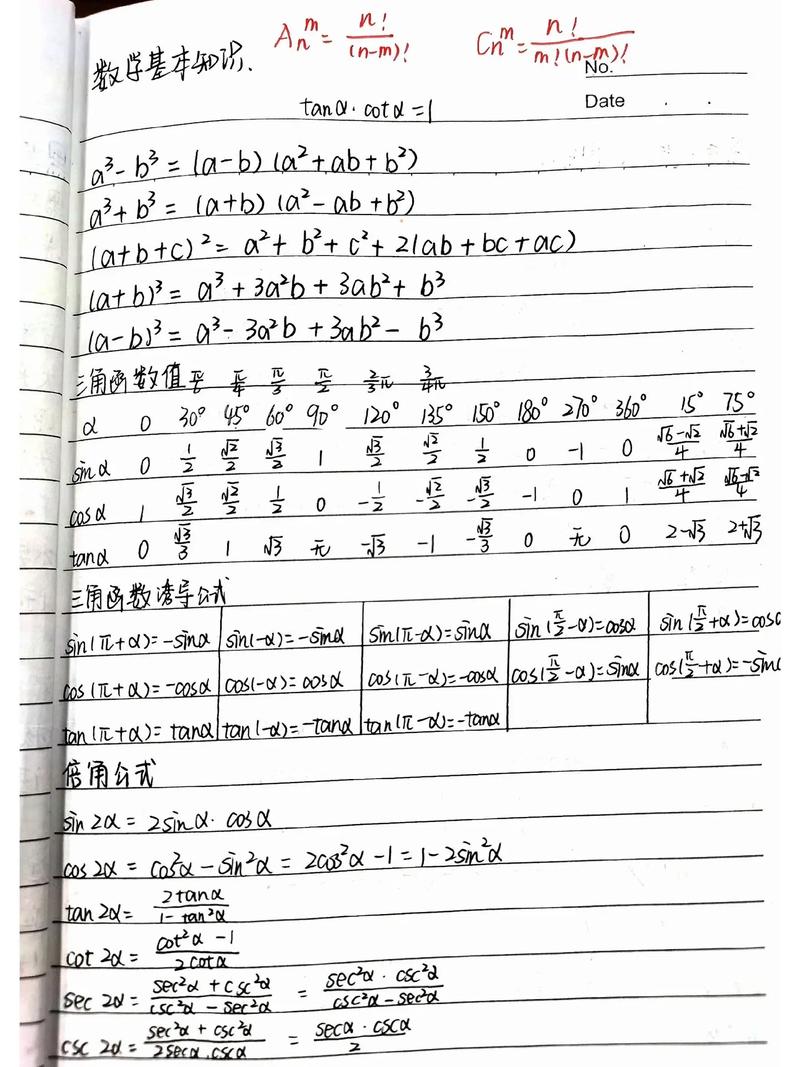 A_n^m = n!/(n-m)!   C_n^m = n!/m!(n-m)!
数学基本知识、
No.
tanα·cotα=1
Date . .
a³-b³ = (a-b)(a²+ab+b²)
a³+b³ = (a+b)(a²-ab+b²)
(a+b+c)² = a²+b²+c²+2(ab+bc+ac)
(a+b)³ = a³+3a²b+3ab²+b³
(a-b)³ = a³-3a²b+3ab²-b³
三角函数值 π/6 π/4 π/3 π/2 2/3π 3/4π
α 0 30° 45° 60° 90° 120° 135° 150° 180° 270° 360° 15° 75°
sinα 0 1/2 √2/2 √3/2 1 √3/2 √2/2 1/2 0 -1 0 √6-√2/4 √6+√2/4
cosα 1 √3/2 √2/2 1/2 0 -1/2 -√2/2 -√3/2 -1 0 1 √6+√2/4 √6-√2/4
tanα 0 √3/3 1 √3 无 -√3 -1 -√3/3 0 无 0 2-√3 2+√3
三角函数诱导公式
sin(π+α)=-sinα sin(-α)=-sinα sin(π-α)=sinα sin(π/2-α)=cosα sin(π/2+α)=cos
cos(π+α)=-cosα cos(-α)=cosα cos(π-α)=-cosα cos(π/2-α)=sinα cos(π/2+α)=-sin
tan(π+α)=tanα tan(-α)=-tanα tan(π-α)=-tanα
倍角公式
sin2α = 2sinα·cosα
cos2α = cos²α-sin²α = 2cos²α-1 = 1-2sin²α
tan2α = 2tanα/1-tan²α
cot2α = cot²α-1/2cotα
sec2α = sec²α+csc²α/csc²α-sec²α = sec²α·csc²α/csc²α-sec²α
csc2α = sec²α+csc²α/2secα.cscα = secα·cscα/2